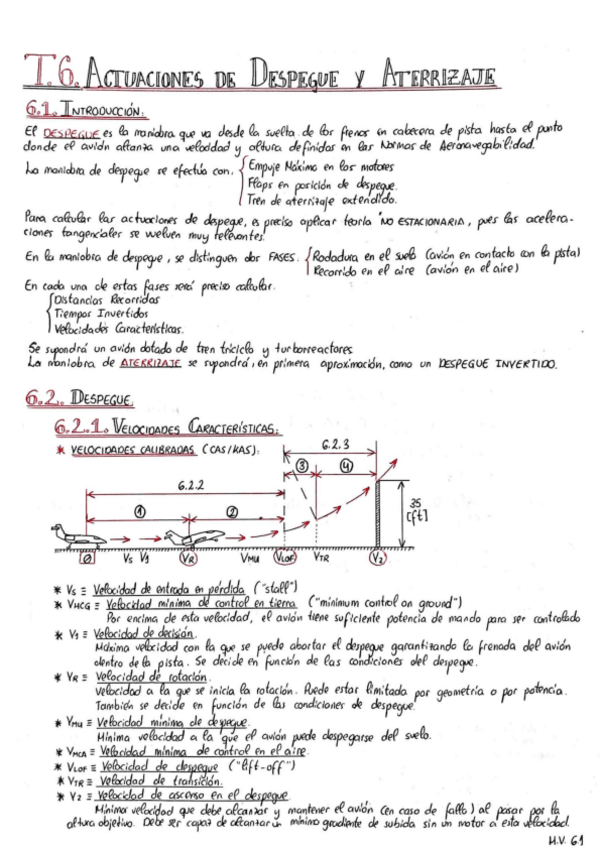 T.6. ACTUACIONES DE DESPEGUE Y ATERRIZAJE
6.1. INTRODUCCIÓN:
El DESPEGUE es la maniobra que va desde la suelta de los frenos en cabecera de pista hasta el punto
donde el avión alcanza una velocidad y altura definidas en las Normas de Aeronavegabilidad.
La maniobra de despegue se efectúa con: Empuje Máximo en los motores
Flaps en posición de despegue.
Tren de aterrizaje extendido.
Para calcular las actuaciones de despegue, es preciso aplicar teoría "NO ESTACIONARIA", pues las acelera-
ciones tangenciales se vuelven muy relevantes.
En la maniobra de despegue, se distinguen dos FASES: Rodadura en el suelo (avión en contacto con la pista)
Recorrido en el aire (avión en el aire)
En cada una de estas fases será preciso calcular:
Distancias Recorridas
Tiempos Invertidos
Velocidades Características.
Se supondrá un avión dotado de tren triciclo y turborreactores
La maniobra de ATERRIZAJE se supondrá, en primera aproximación, como un DESPEGUE INVERTIDO.
6.2. DESPEGUE:
6.2.1. VELOCIDADES CARACTERÍSTICAS:
* VELOCIDADES CALIBRADAS (CAS/KAS):
6.2.3
3 4
6.2.2
1 2
35
[ft]
0 Vs V1 VR VMU VLOF VTR V2
* Vs ≡ Velocidad de entrada en pérdida ("stall")
* VMCG ≡ Velocidad mínima de control en tierra ("minimum control on ground")
Por encima de esta velocidad, el avión tiene suficiente potencia de mando para ser controlado
* V1 ≡ Velocidad de decisión.
Máxima velocidad con la que se puede abortar el despegue garantizando la frenada del avión
dentro de la pista. Se decide en función de las condiciones del despegue.
* VR ≡ Velocidad de rotación.
Velocidad a la que se inicia la rotación. Puede estar limitada por geometría o por potencia.
También se decide en función de las condiciones de despegue.
* VMU ≡ Velocidad mínima de despegue.
Mínima velocidad a la que el avión puede despegarse del suelo.
* VMCA ≡ Velocidad mínima de control en el aire.
* VLOF ≡ Velocidad de despegue ("lift-off")
* VTR ≡ Velocidad de transición.
* V2 ≡ Velocidad de ascenso en el despegue.
Mínima velocidad que debe alcanzar y mantener el avión (en caso de fallo) al pasar por la
altura objetivo. Debe ser capaz de alcanzar un mínimo gradiente de subida sin un motor a esta velocidad.
M.V. 61